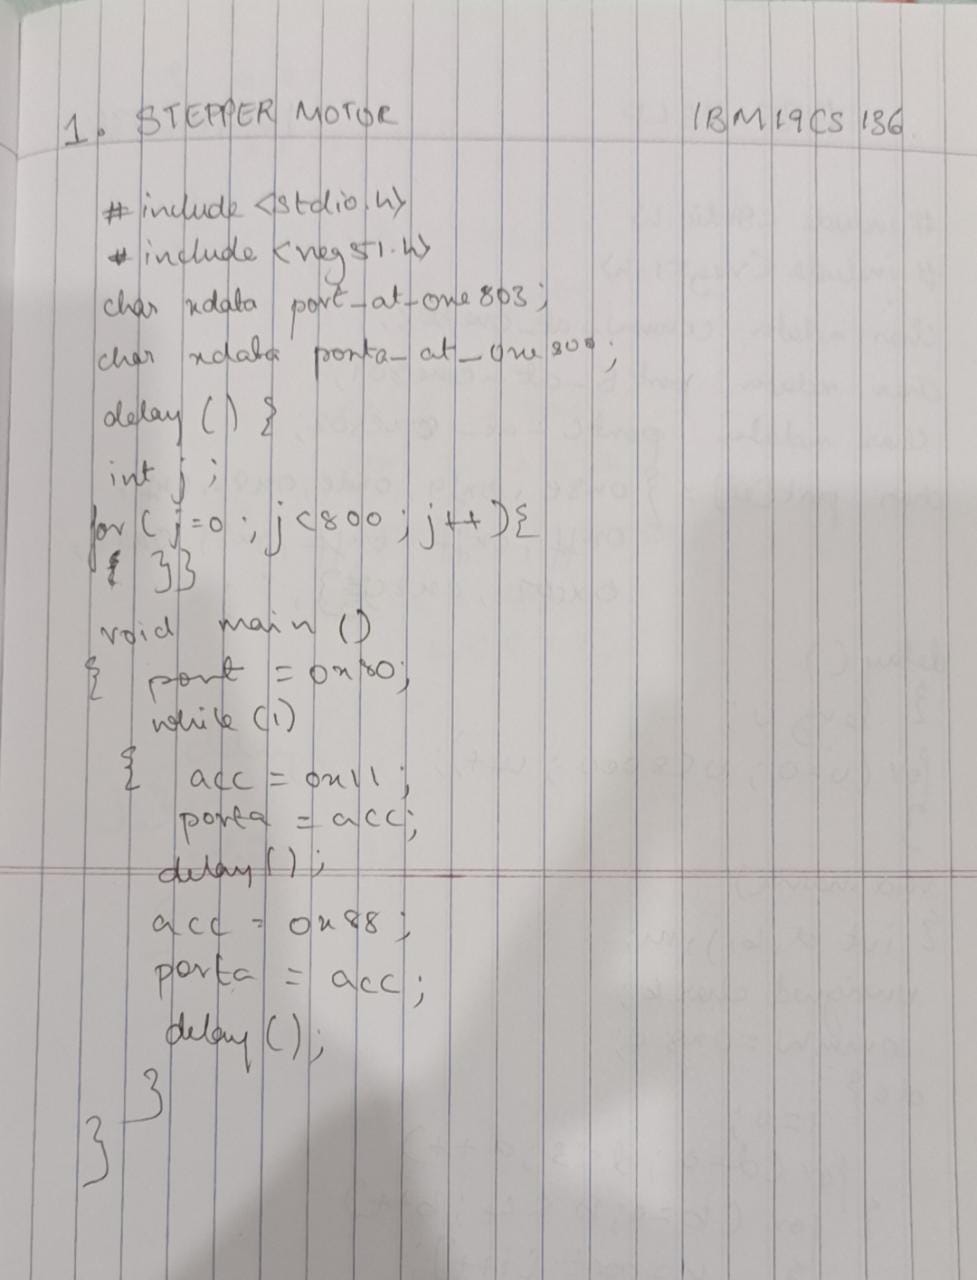 1. STEPPER MOTOR 1BM19CS136
#include <stdio.h>
#include <reg51.h>
char xdata port_at_one803;
char xdata porta_at_one800;
delay () {
int j ;
for ( j=0 ; j<800 ; j++){
{ }}
void main ()
{ port = 0x80;
while (1)
{ acc = 0x11 ;
porta = acc;
delay();
acc = 0x88 ;
porta = acc;
delay();
}
}